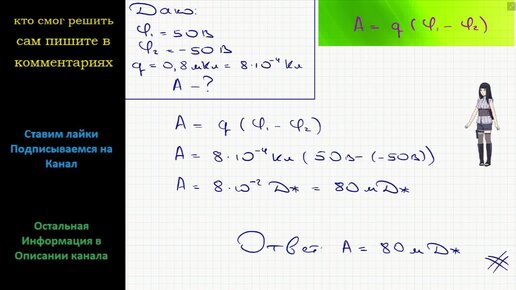 кто смог решить
сам пишите в
комментариях
Ставим лайки
Подписываемся на
Канал
Остальная
Информация в
Описании канала
Дано:
φ₁ = 50В
φ₂ = -50В
q = 0,8мкл = 8·10⁻⁴Кл
A - ?
A = q (φ₁ - φ₂)
A = q (φ₁ - φ₂)
A = 8·10⁻⁴Кл (50В-(-50В))
A = 8·10⁻² Дж = 80мДж
Ответ: A = 80мДж